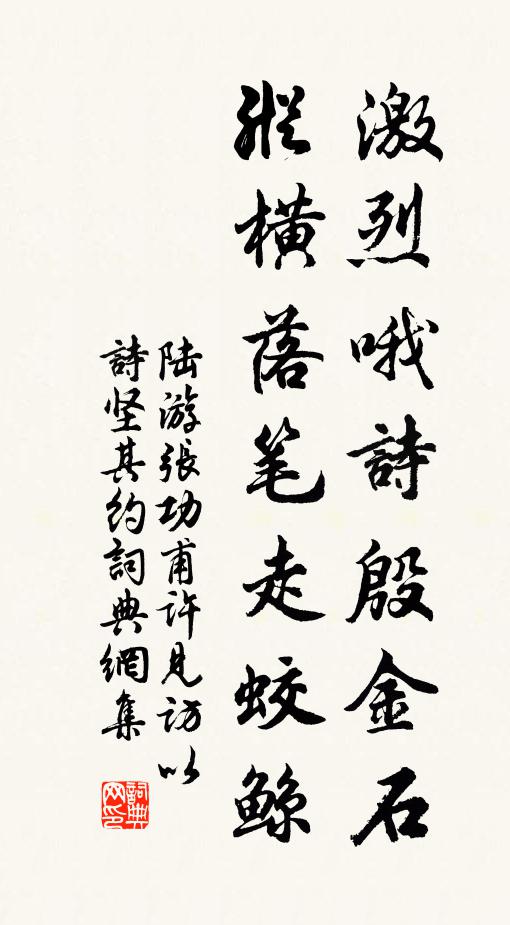 激烈哦詩殷金石
縱橫落笔走蛟鯨
陆游張功甫許見訪以
詩坚其约詞典網集
詞典网印